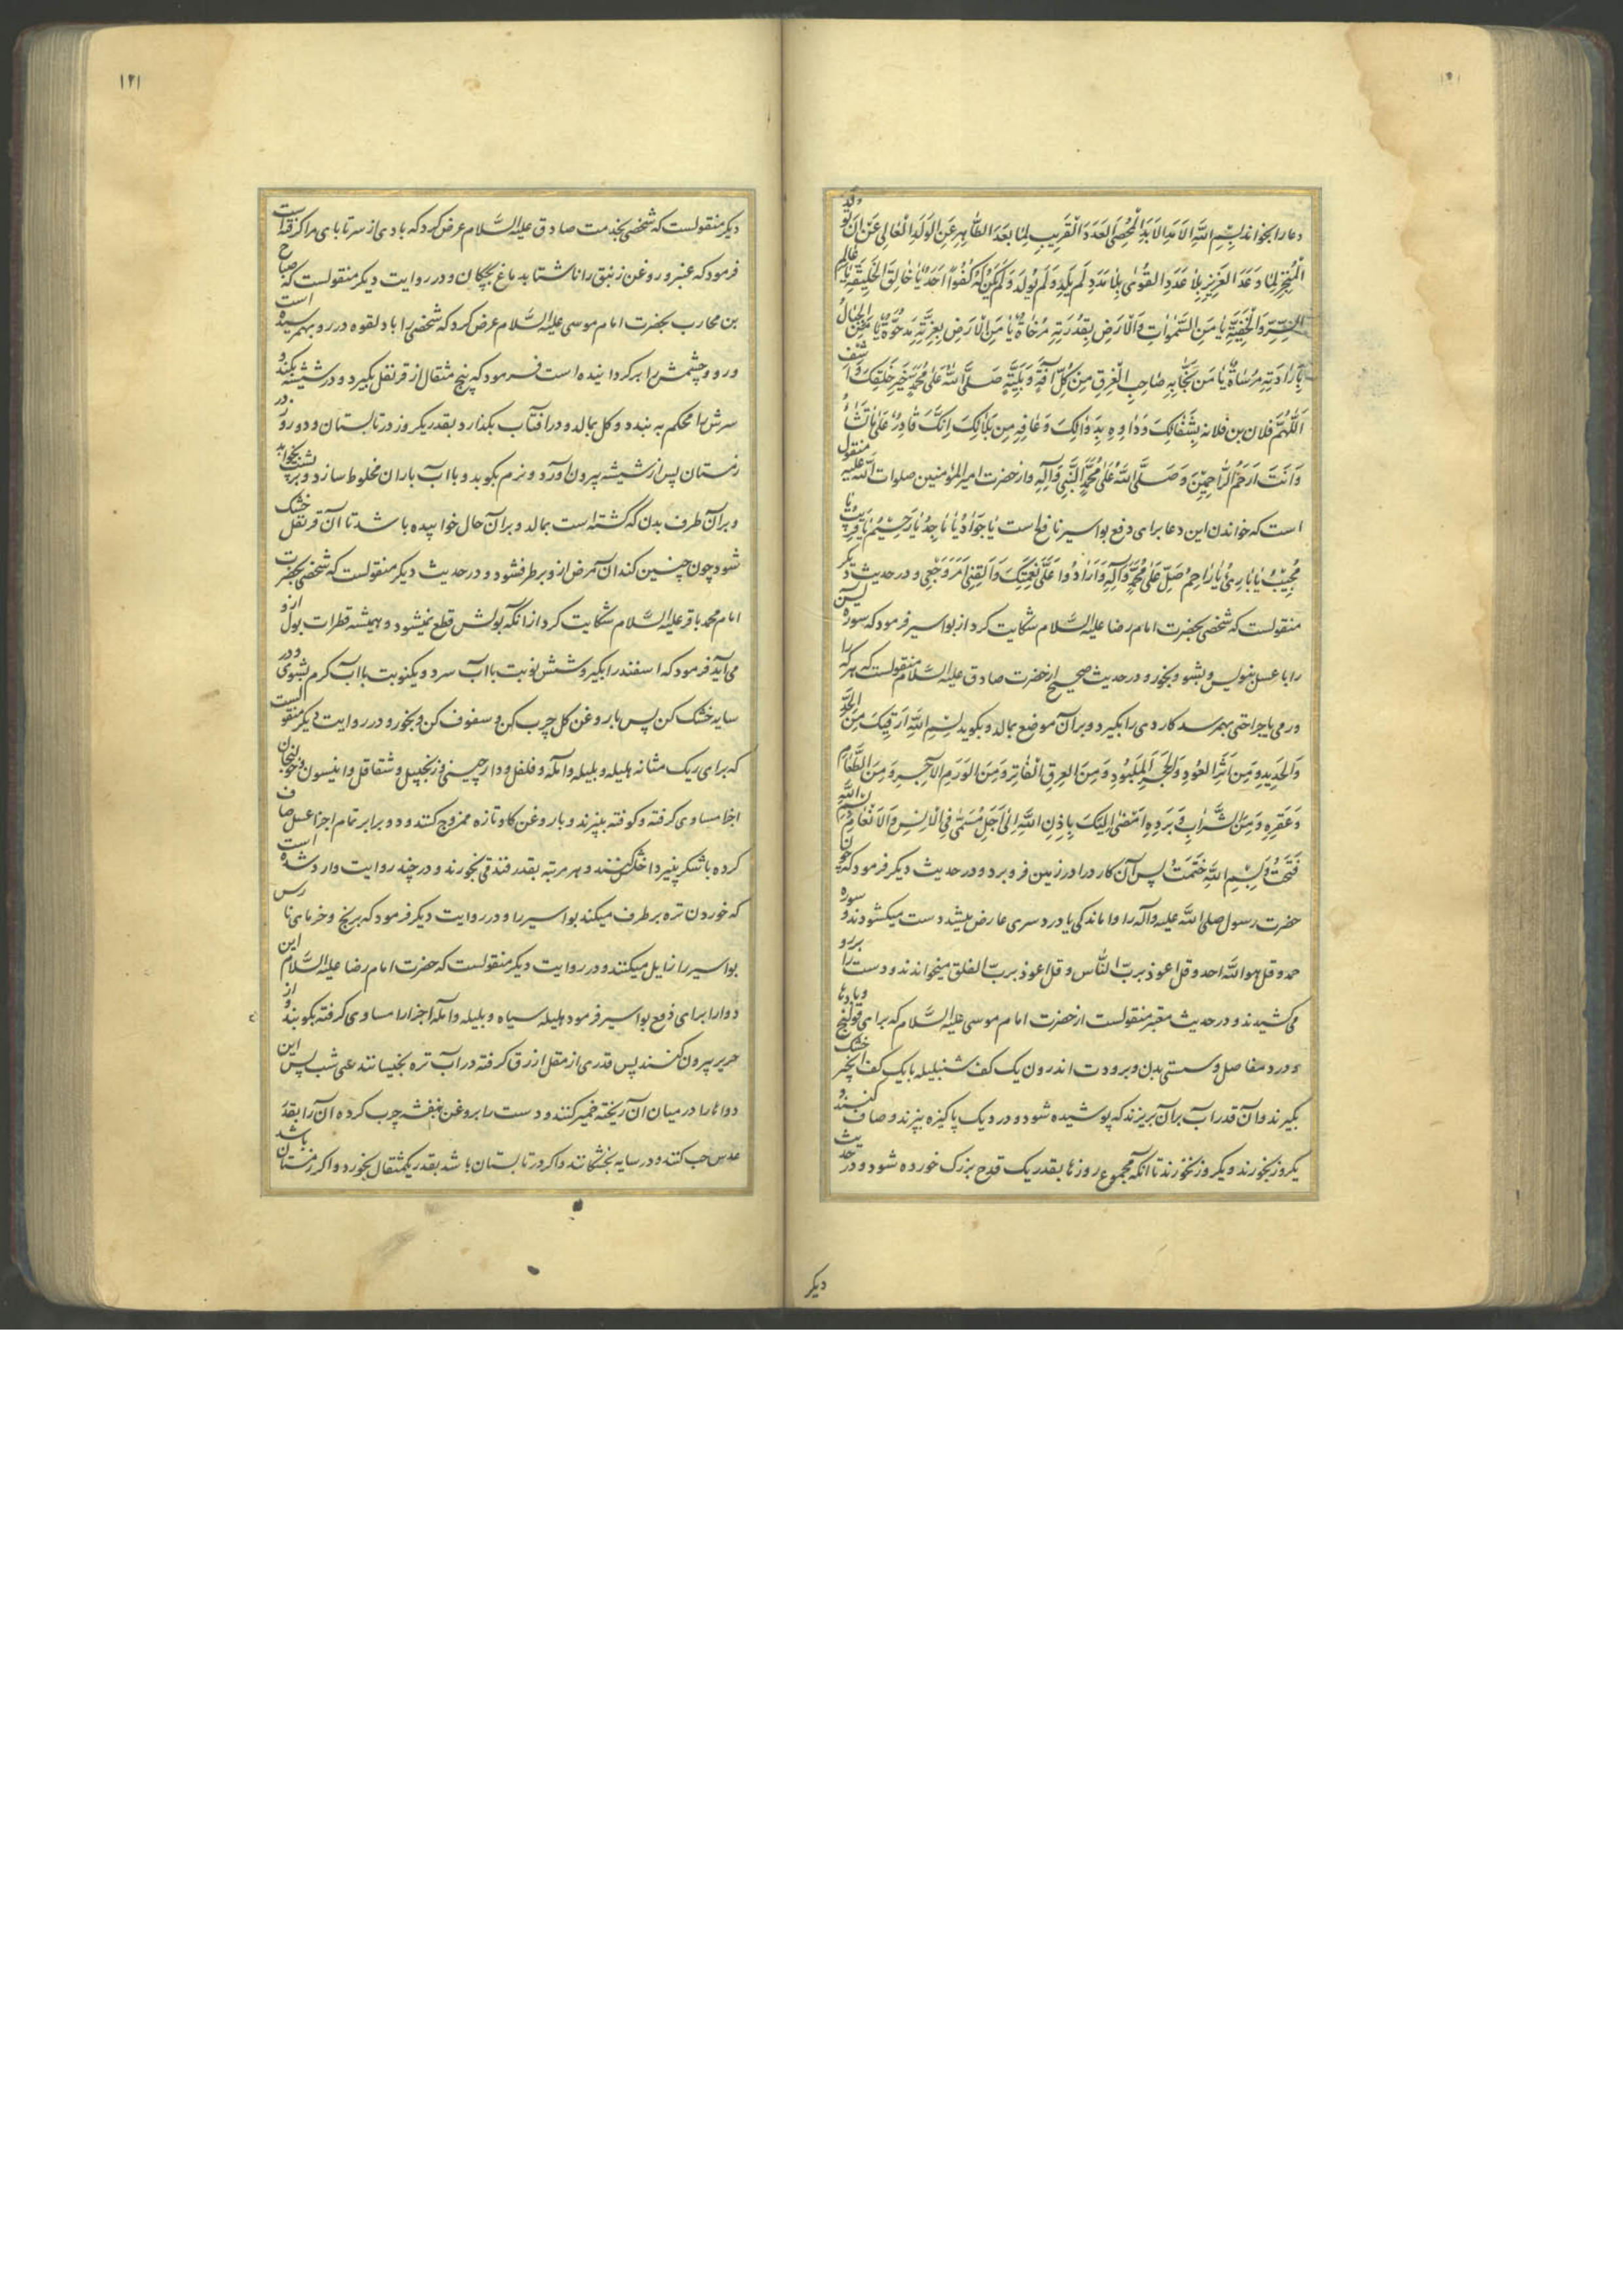 دعا را بخواند بسم الله الابد الابد المحصی العدد القریب لما بعد الطاهر عن الولد العالی عن ان تولد
المنجز لما وعد العزیز بلا عدد القوی بلا مدد لم یلد ولم یولد ولم یکن له کفوا احد یا خالق الخلیقة یا عالم
السر والخفیة یا من السموات والارض بقدرته مرخاة یا من الارض بعزته مدحوة یا من الجبال
بارادته مرساة یا من نجا به صاحب الغرق من کل آفة وبلیة صلی الله علی محمد خیر خلقک واشف
اللهم فلان بن فلانه بشفائک وداوه بدوائک وعافه من بلائک انک قادر علی ما تشاء
وانت ارحم الراحمین وصلی الله علی محمد النبی وآله واز حضرت امیرالمؤمنین صلوات الله علیه منقول
است که خواندن این دعا برای دفع بواسیر نافع است یا جواد یا ماجد یا رحیم یا قریب یا
مجیب یا باری یا راحم صل علی محمد وآله واردد علی نعمتک واکفنی امر وجعی و در حدیث دیکر
منقولست که شخصی بحضرت امام رضا علیه السلام شکایت کرد از بواسیر فرمود که سوره یس
را با عسل بنویس و بشو و بخور و در حدیث صحیح از حضرت صادق علیه السلام منقولست که هر که را
ورمی یا جراحتی بهم رسد کاردی را بگیرد و بر آن موضع بمالد و بکوید بسم الله ارقیک من الحد
والحدید ومن اثر العود والحجر الملبود ومن العرق الفاتر ومن الورم الآجر ومن الطعام
وعقره ومن الشراب وبرده امضی الیک باذن الله الی اجل مسمی فی الانس والانعام بسم الله
فتحت وبسم الله ختمت پس آن کارد را در زمین فرو برد و در حدیث دیکر فرمود که چون
حضرت رسول صلی الله علیه وآله را واماندکی یا دردسری عارض میشد دست میکشودند و سوره
حمد و قل هو الله احد و قل اعوذ برب الناس و قل اعوذ برب الفلق میخواندند و دست را بر رو
می کشیدند و در حدیث معتبر منقولست از حضرت امام موسی علیه السلام که برای قولنج و بادها
و درد مفاصل و سستی بدن و برودت اندرون یک کف شنبلیله با یک کف انجیر خشک
بگیرند و آن قدر آب بر آن بریزند که پوشیده شود و در دیک پاکیزه بپزند و صاف کنند و
یکروز بخورند و یکروز نخورند تا آنکه مجموع روزها بقدر یک قدح بزرک خورده شود و در حدیث
دیکر
۱۲۱
دیکر منقولست که شخصی بخدمت صادق علیه السلام عرض کرد که بادی از سر تا پای مرا کرفته است
فرمود که عنبر و روغن زنبق را ناشتا بدماغ بچکان و در روایت دیکر منقولست که صباح
بن محارب بحضرت امام موسی علیه السلام عرض کرد که شخصی را باد لقوه در رو بهم رسیده است
و رو و چشمش را برکردانیده است فرمود که پنج مثقال از قرنفل بگیرد و در شیشه بکند و
سرش را محکم به بندد و کل بمالد و در آفتاب بکذارد بقدر یکروز در تابستان و دو روز در
زمستان پس از شیشه بیرون آورد و نرم بکوبد و با آب باران مخلوط سازد و بر پشت بخوابد
و بر آن طرف بدن که کشته است بمالد و بر آن حال خوابیده باشد تا آن قرنفل خشک
شود چون چنین کند آن مرض از و برطرف شود و در حدیث دیکر منقولست که شخصی بحضرت
امام محمد باقر علیه السلام شکایت کرد از آنکه بولش قطع نمیشود و همیشه قطرات بول از و
می آید فرمود که اسفند را بگیر و شش نوبت با آب سرد و یکنوبت با آب کرم بشوی و در
سایه خشک کن پس با روغن کل چرب کن و سفوف کن و بخور و در روایت دیکر منقولست
که برای ریک مثانه هلیله و بلیله و آمله و فلفل و دارچینی و زنجبیل و شقاقل و انیسون و خولنجان
اجزا مساوی کرفته و کوفته بپزند و با روغن کاو تازه ممزوج کنند و دو برابر تمام اجزا عسل صاف
کرده با شکر پنیر داخل کنند و هر مرتبه بقدر فندقی بخورند و در چند روایت وارد شده است
که خوردن تره برطرف میکند بواسیر را و در روایت دیکر فرمود که برنج و خرمای نارس
بواسیر را زایل میکنند و در روایت دیکر منقولست که حضرت امام رضا علیه السلام این
دوا را برای دفع بواسیر فرمود هلیله سیاه و بلیله و آمله اجزا را مساوی کرفته بکوبند و از
حریر بیرون کنند پس قدری از مقل ازرق کرفته در آب تره بخیسانند سی شب پس این
دواها را در میان آن ریخته خمیر کنند و دست را بروغن بنفشه چرب کرده آن را بقدر
عدس حب کنند و در سایه بخشکانند و اکر در تابستان باشد بقدر یکمثقال بخورد و اکر زمستان باشد